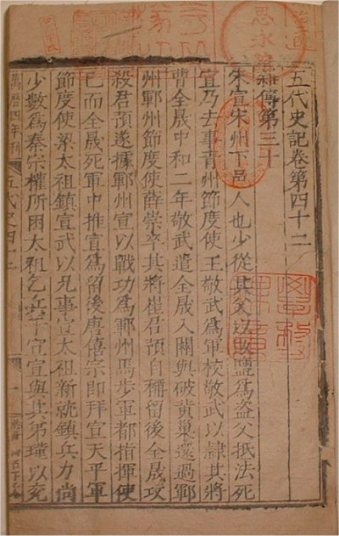 五代史記卷第四十二
雜傳第三十
朱宣宋州下邑人也少從其父以販鹽為盜父抵法死
宣乃去事青州節度使王敬武為軍校敬武以隸其將
曹全晟中和二年敬武遣全晟入關與破黃巢還過鄆
州鄆州節度使薛崇卒其將崔君預自稱留後全晟攻
殺君預遂據鄆州宣以戰功為鄆州馬步軍都指揮使
已而全晟死軍中推宣為留後唐僖宗即拜宣天平軍
節度使梁太祖鎮宣武以兄事宣太祖新就鎮兵力尚
少數為秦宗權所困太祖乞兵於宣宣與其弟瑾以兗
萬曆四年刊
五代史四十二
一